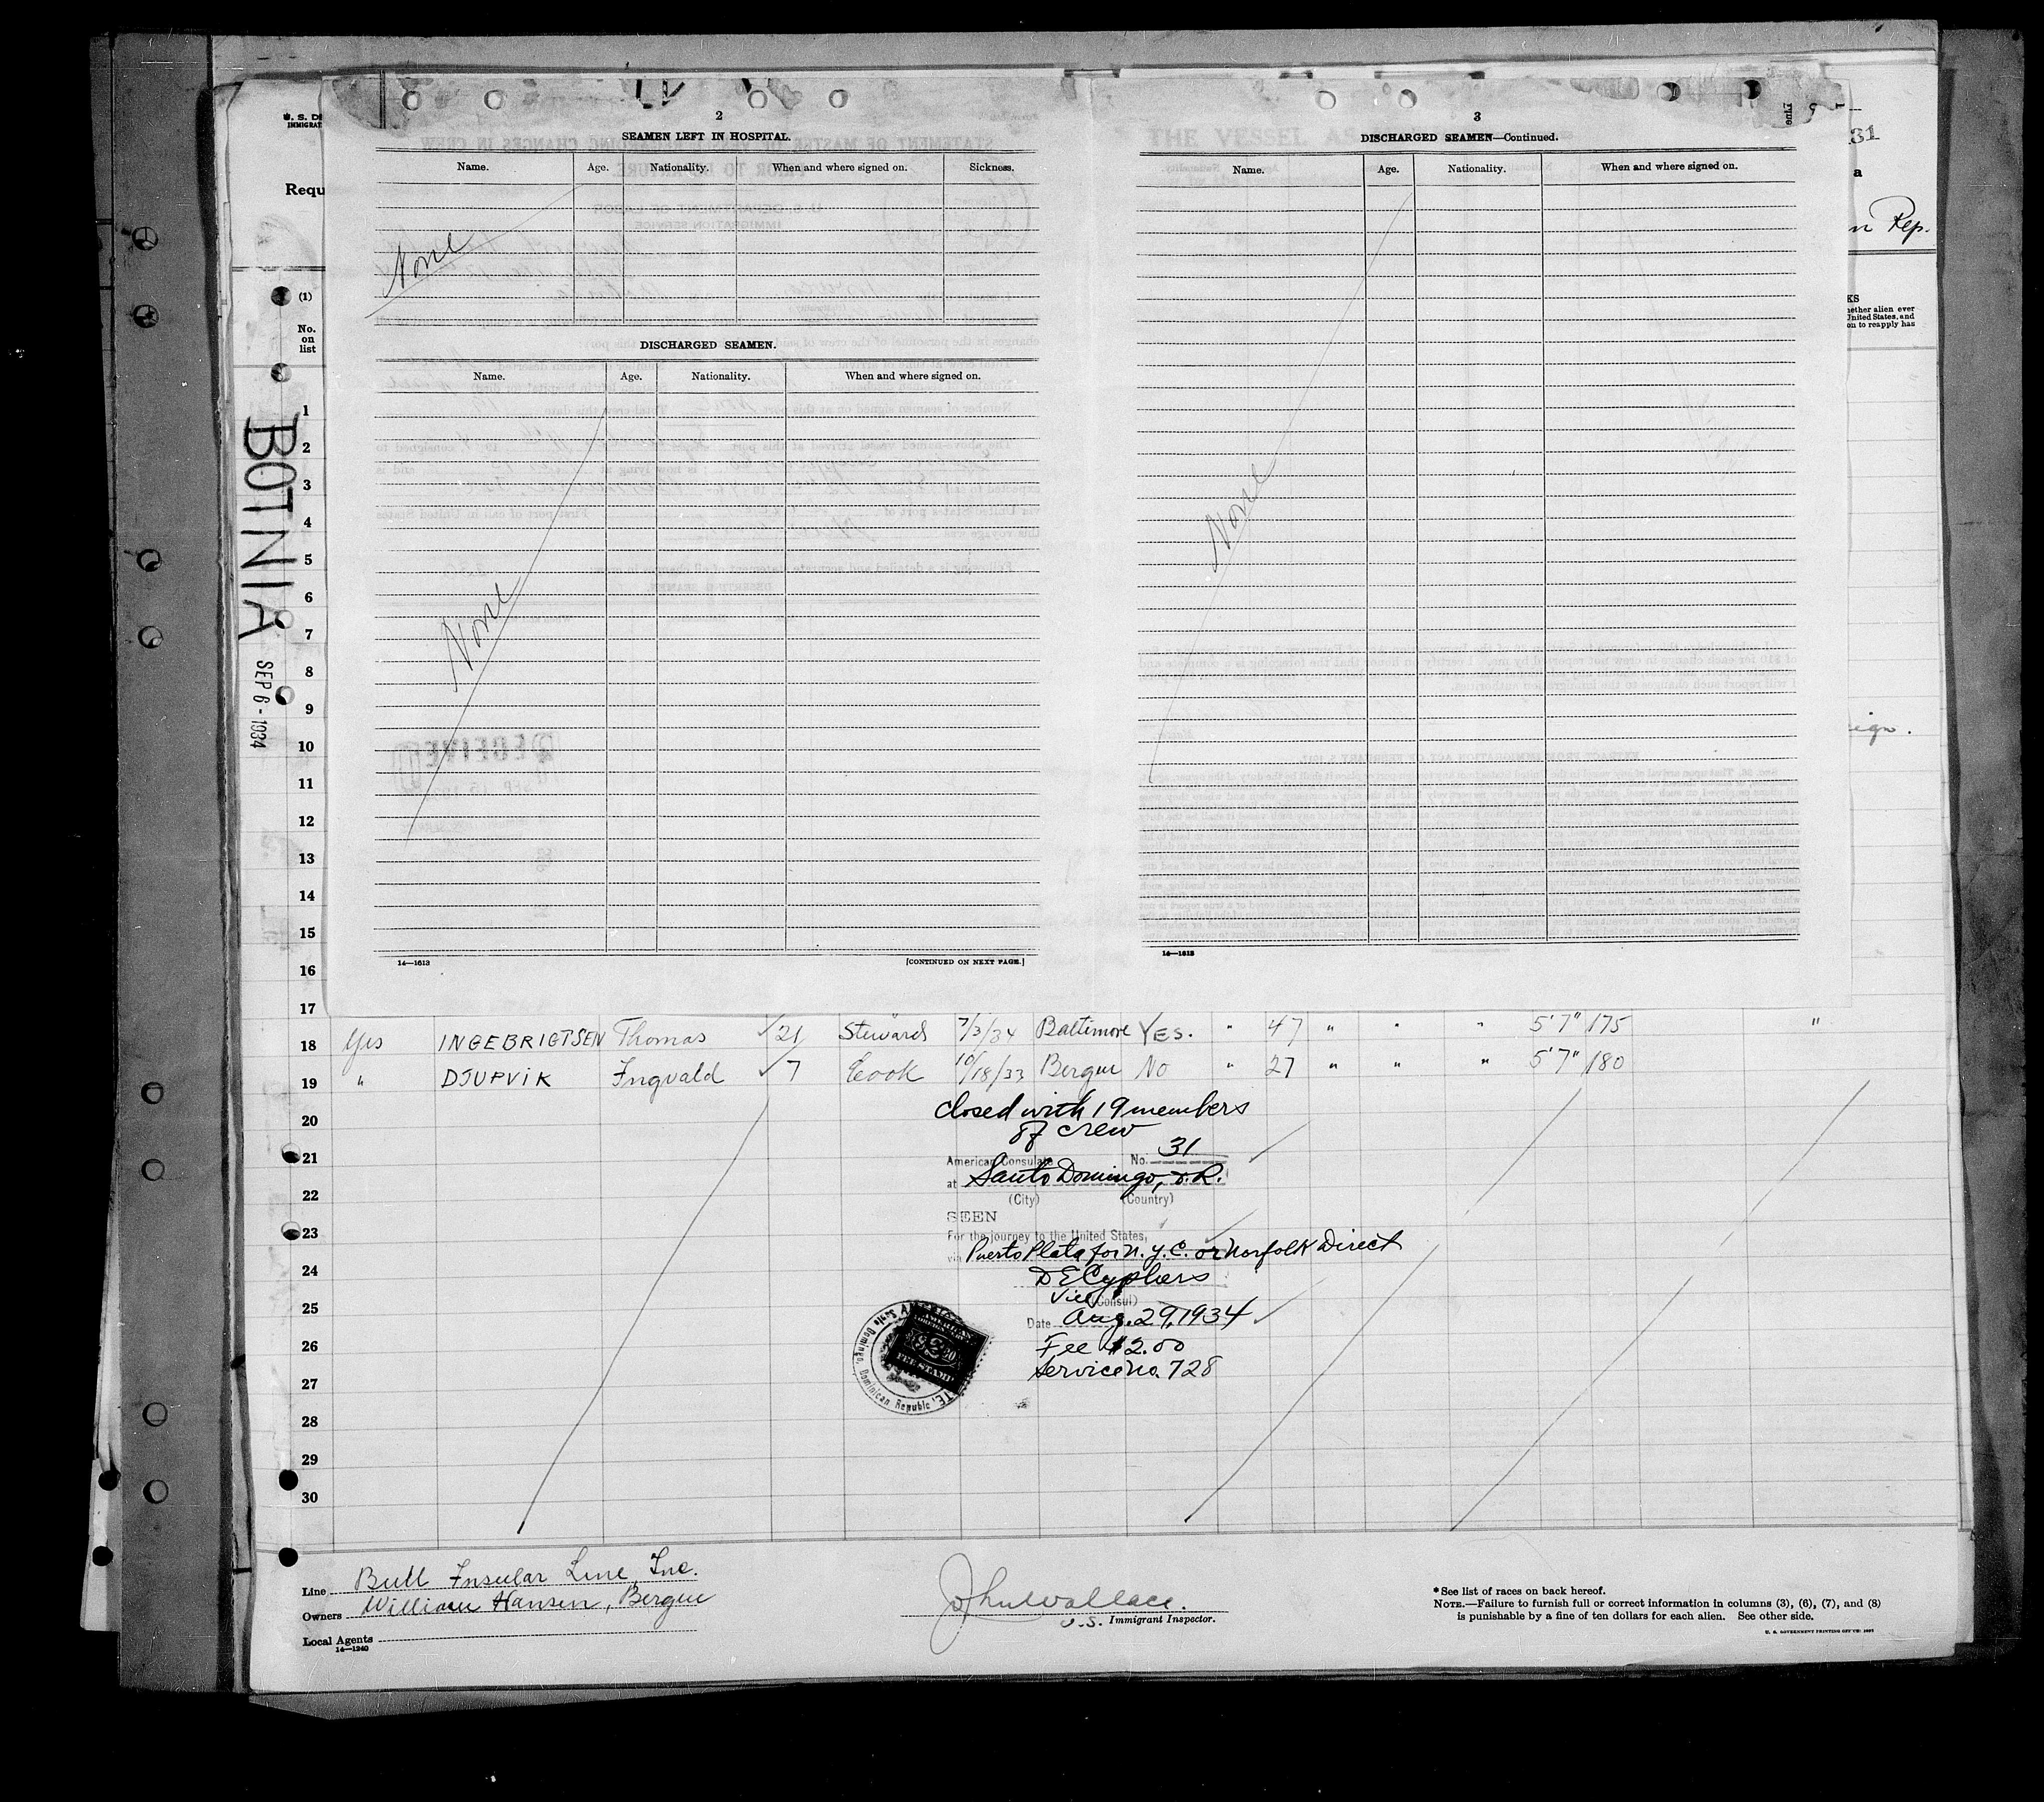 2
SEAMEN LEFT IN HOSPITAL.
Name. Age. Nationality. When and where signed on. Sickness.
None
DISCHARGED SEAMEN.
Name. Age. Nationality. When and where signed on.
None
14—1613 [CONTINUED ON NEXT PAGE.]
3
DISCHARGED SEAMEN—Continued.
Name. Age. Nationality. When and where signed on.
None
14—1613
U. S. DE
IMMIGRAT
Requ
(1)
No.
on
list
31
a
n Rep.
KS
hether alien ever
United States, and
on to reapply has
eign.
BOTNIA
SEP 6 - 1934
1
2
3
4
5
6
7
8
9
10
11
12
13
14
15
16
17
18 Yes INGEBRIGTSEN Thomas ✓ 21 Steward 7/3/34 Baltimore YES. " 47 " " " 5'7" 175 "
19 " DJUPVIK Ingvald ✓ 7 Cook 10/18/33 Bergen No " 27 " " " 5'7" 180
20
21
22
23
24
25
26
27
28
29
30
Closed with 19 members
of crew
American Consulate No. 31
at Santo Domingo, D.R.
(City) (Country)
SEEN
For the journey to the United States,
via Puerto Plata for N.Y.C. or Norfolk Direct
D E Cyphers
Vice (Consul)
Date Aug. 29, 1934
Fee $2.00
Service No. 728
AMERICAN
FEE STAMP
Santo Domingo, Dominican Republic
Line Bull Insular Line, Inc.
Owners William Hansen, Bergen
Local Agents
14—1240
John Wallace.
U.S. Immigrant Inspector.
* See list of races on back hereof.
NOTE.—Failure to furnish full or correct information in columns (3), (6), (7), and (8)
is punishable by a fine of ten dollars for each alien. See other side.
U. S. GOVERNMENT PRINTING OFFICE: